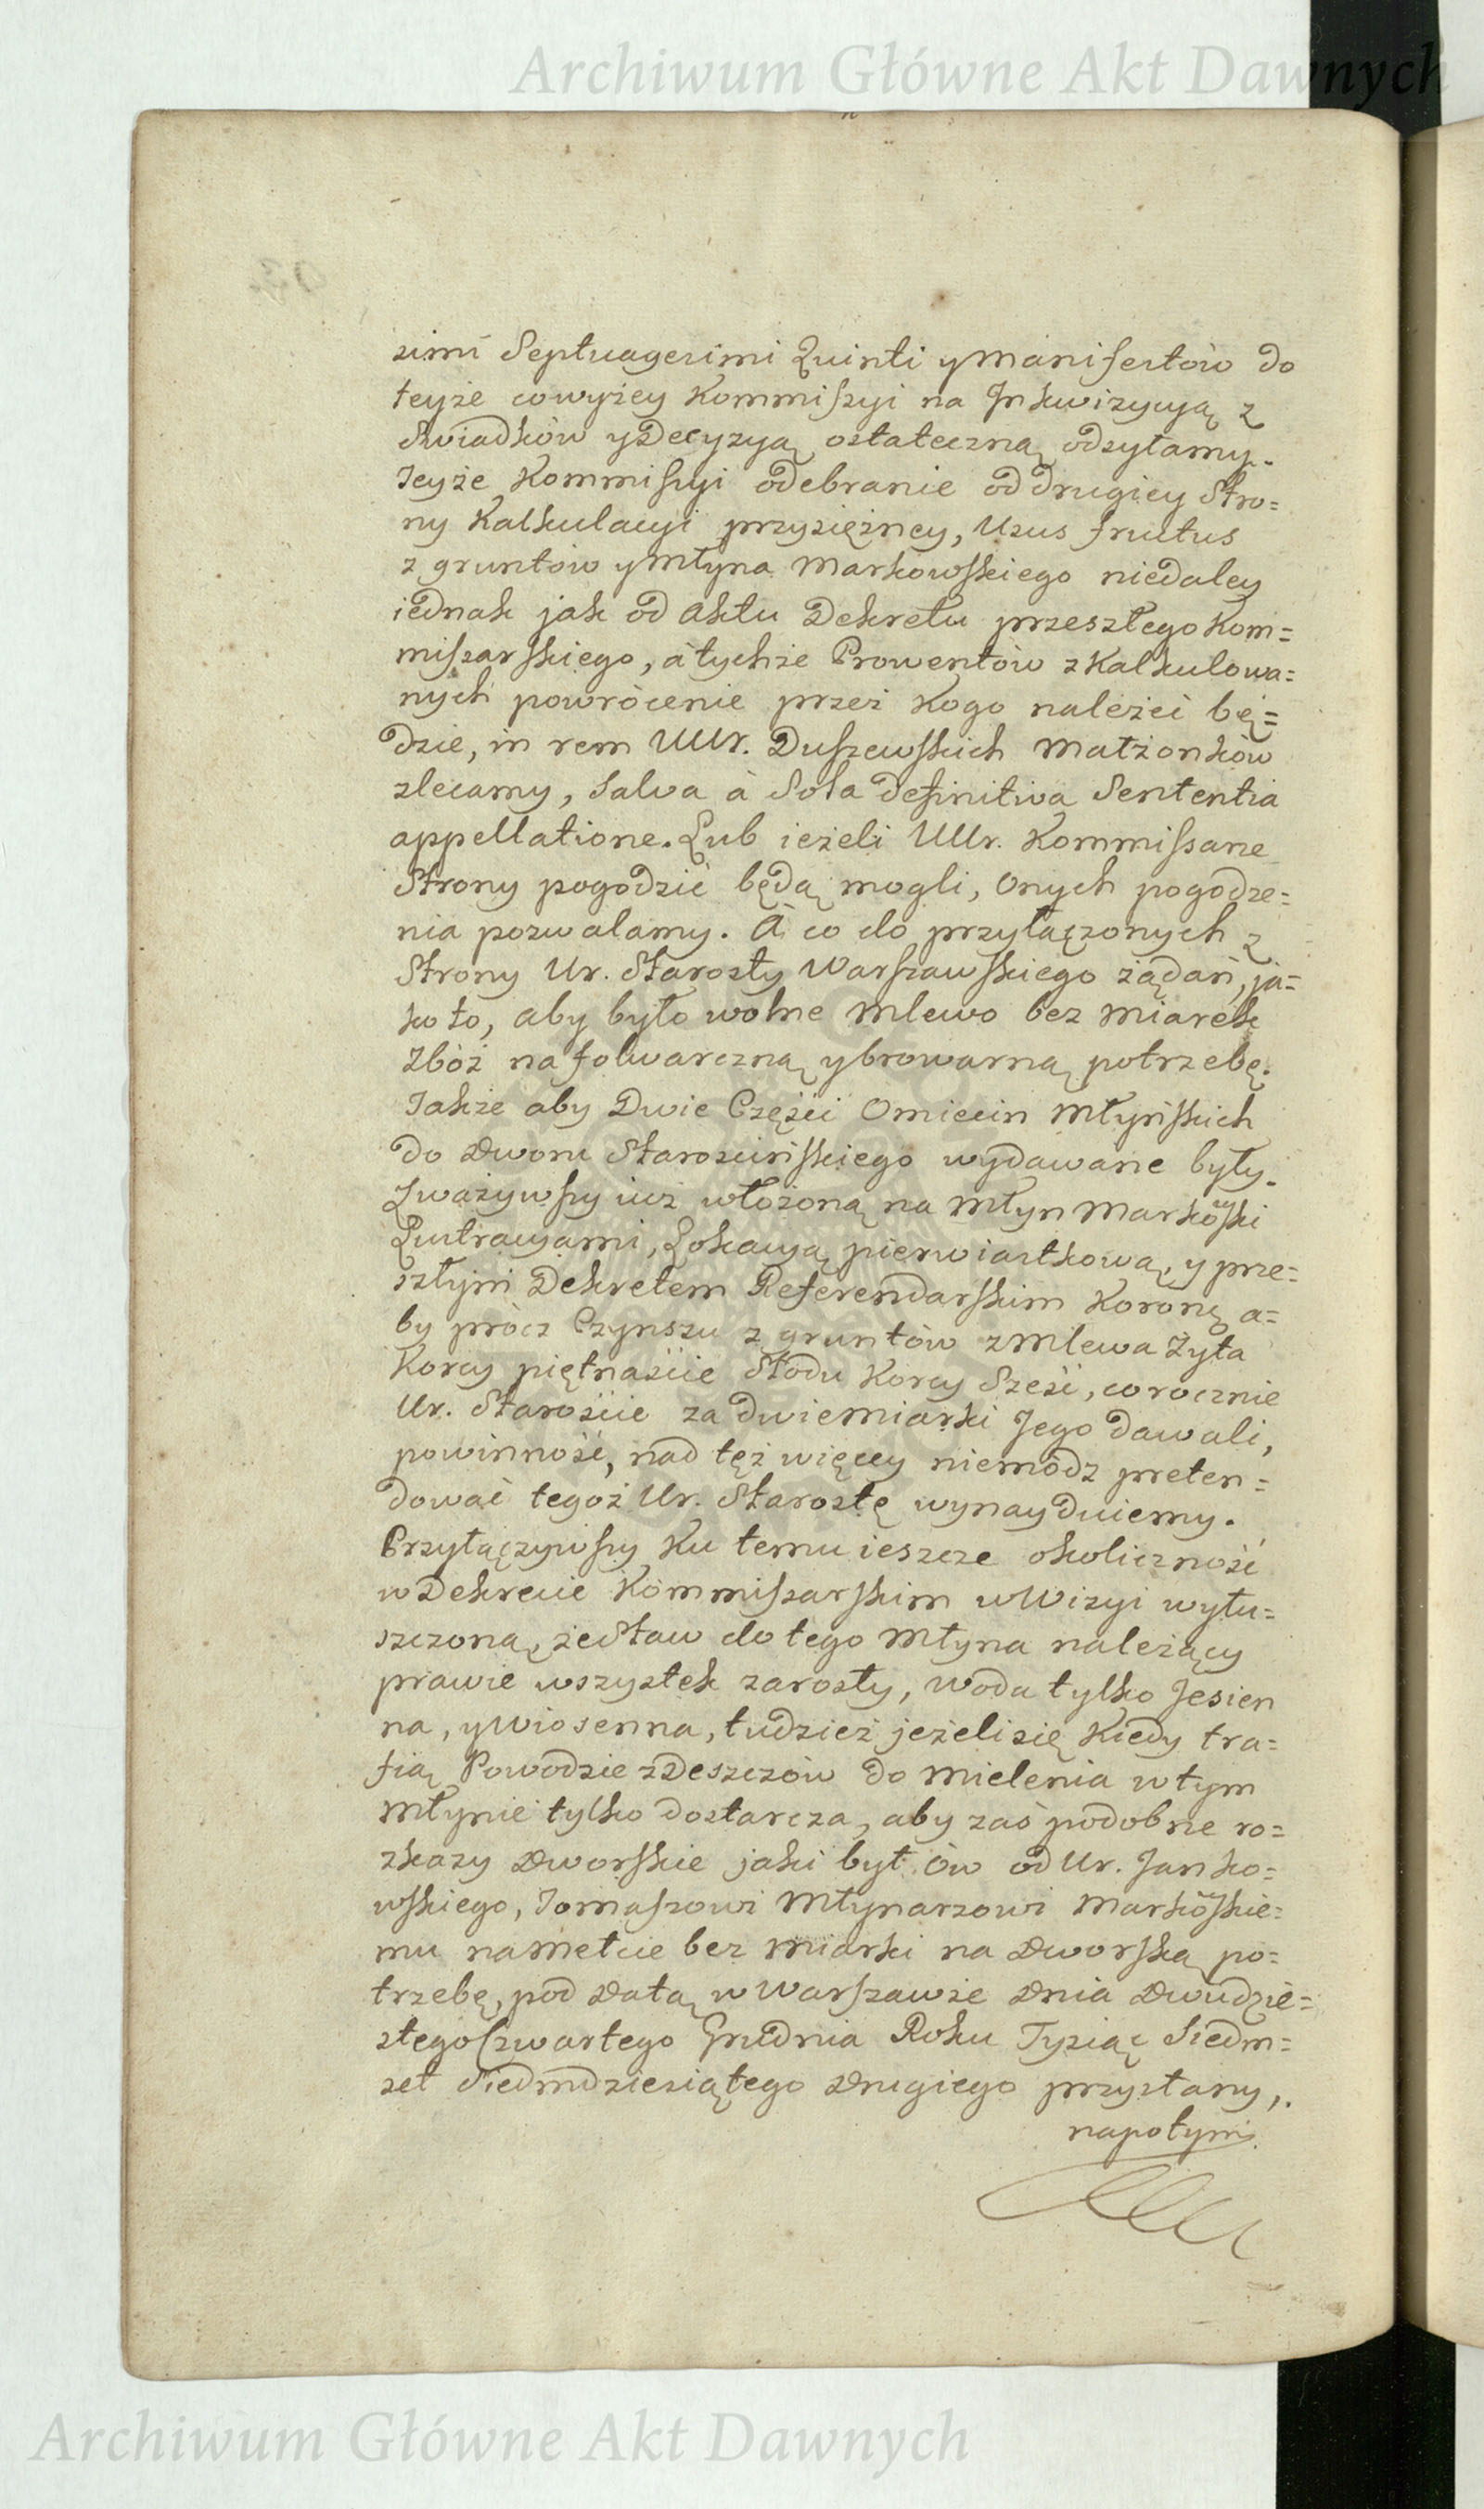 Archiwum Główne Akt Dawnych
simi Septuagesimi Quinti y Manifestów do
teyże cowyżey Kommiszyi na Inkwizycyą z
Swiadków y Decyzyą ostateczną odsyłamy.
Teyże Kommiszyi odebranie od drugiey Stro=
ny Kalkulacyi przysiężney, Usus fructus
z gruntów y Młyna Markowskiego niedaley
iednak jak od Aktu Dekretu przeszłego Kom=
miszarskiego, à tychże Prowentów zKalkulowa=
nych powrócenie przez kogo należeć bę=
dzie, in rem UUr. Duszewskich Małżonków
zlecamy, Salva à Sola definitiva Sententia
appellatione. Lub ieżeli UUr. Kommissarze
Strony pogodzić będą mogli, Onych pogodze=
nia pozwalamy. A co do przyłączonych z
Strony Ur. Starosty Warszawskiego żądań, ja=
ko to, aby było wolne Mlewo bez Miarek
Zbóż na folwarczną y browarną potrzebę.
Takze aby Dwie Częśći Omiecin Młyńskich
do Dworu Starościńskiego wydawane były.
Zważywszy iuż włożoną na Młyn Markowski
Lustracyami, Lokacyą pierwiastkową, y prze=
szłym Dekretem Referendarskim Koronę a=
by prócz Czynszu z gruntów z Mlewa Żyta
Korcy piętnaście Słodu Korcy Sześć, corocznie
Ur. Starośćie za dwie miarki Jego dawali,
powinność, nad tęż więcey niemódz preten=
dować tegoż Ur. Starostę wynayduiemy.
Przyłączywszy ku temu ieszcze okoliczność
w Dekrecie Kommiszarskim w Wizyi wyłu=
szczoną, że Staw do tego Młyna należący
prawie wszystek zarosły, woda tylko Jesien
na, y Wiosenna, tudzież jeżeli się kiedy tra=
fią Powodzie z Deszczów do Mielenia w tym
Młynie tylko dostarcza, aby zaś podobne ro=
zkazy Dworskie jaki był ów od Ur. Janko=
wskiego, Tomaszowi Młynarzowi Markowskie=
mu na Mełcie bez miarki na Dworską po=
trzebę, pod Datą w Warszawie Dnia Dwudzie=
stego Czwartego Grudnia Roku Tysiąc Siedm=
set Siedmdziesiątego Drugiego przysłany,
napotym
Archiwum Główne Akt Dawnych